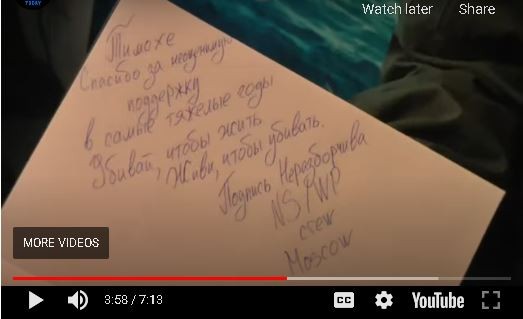 TODAY
Watch later
Share
Тимохе
Спасибо за неоценимую
поддержку
в самые тяжелые годы
Убивай, чтобы жить
Живи, чтобы убивать.
Подпись Неразборчива
NS/WP
crew
Moscow
MORE VIDEOS
3:58 / 7:13
CC
YouTube